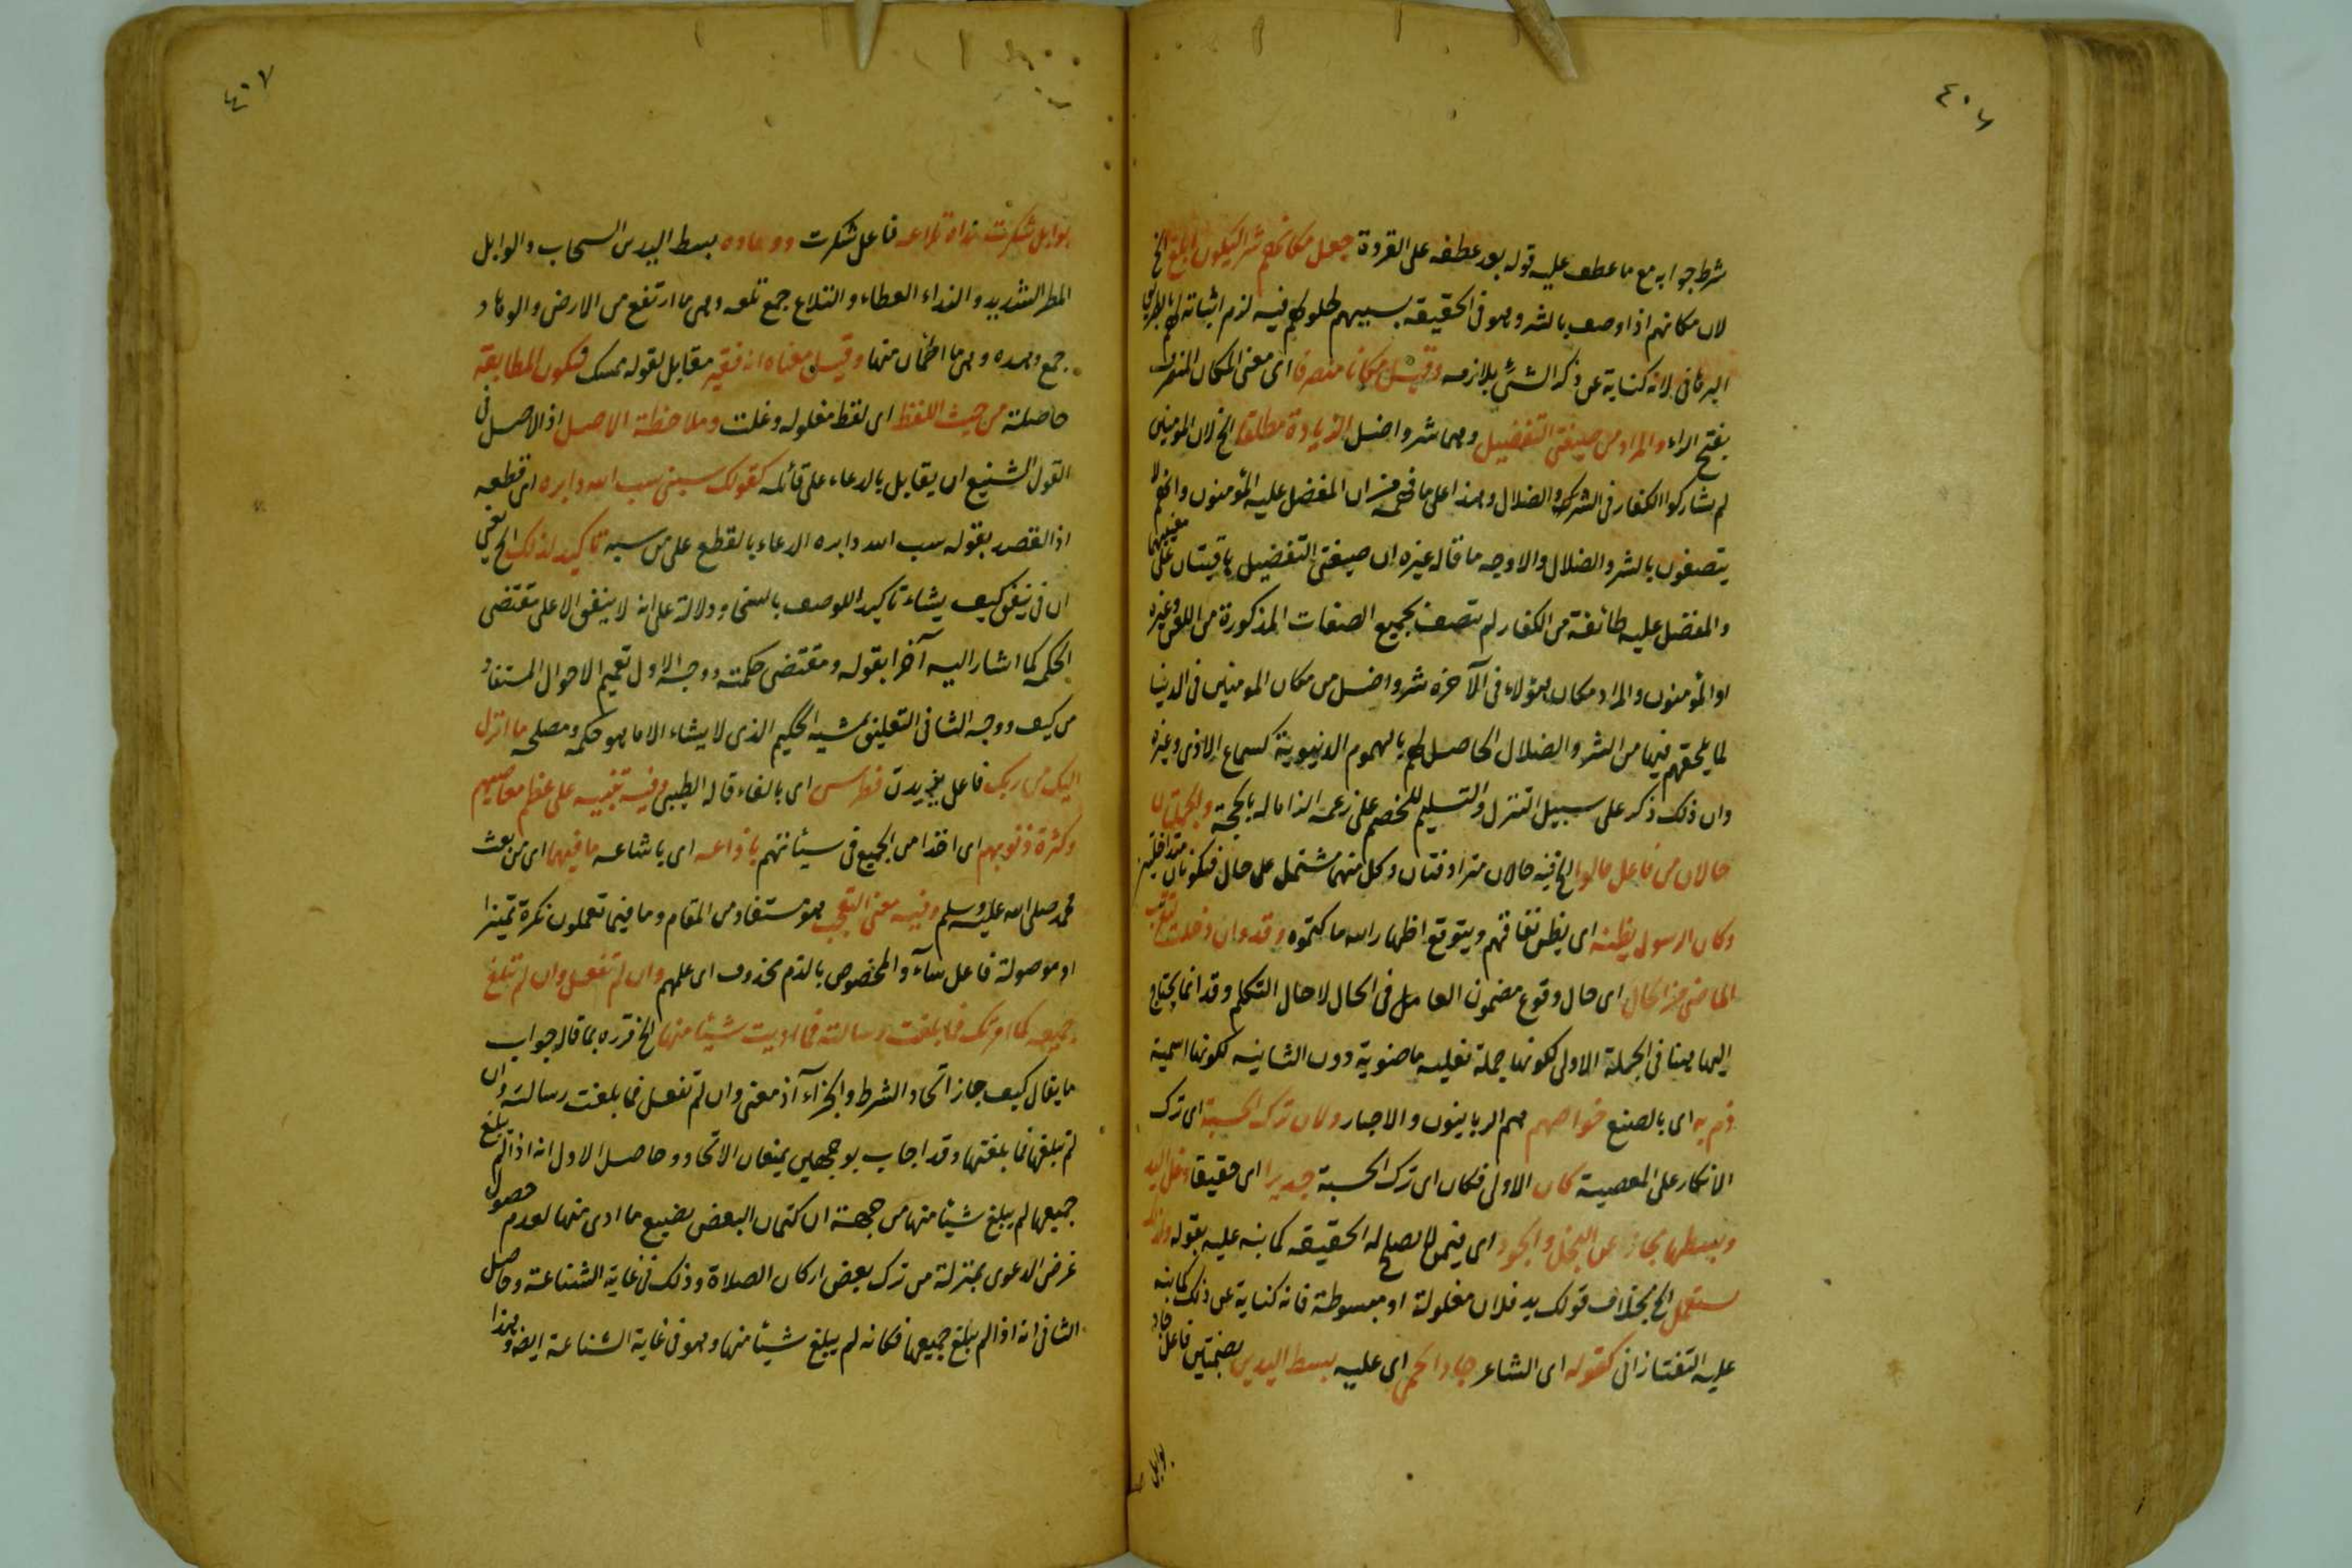 ٤٠٦
شرط جوابه مع ما عطف عليه قوله بعد عطفه على القردة جعل مكانهم شرا ليكون ابلغ الخ
لان مكانهم اذا وصف بالشر وهو في الحقيقه بسببهم لحلولهم فيه لزم اثباته لهم بالطريق
البرهاني لانه كناية عن ذكر الشئ بلازمه وقيل مكانا منصرفا اى معنى المكان المنصرف
بفتح الراء والمراد من صيغتى التفضيل وهما شر واضل الزيادة مطلقا الخ لان المومنين
لم يشاركوا الكفار في الشرك والضلال وهذا على ما فهمه من ان المفضل عليه المؤمنون وانهم لا
يتصفون بالشر والضلال والاوجه ما قاله غيره ان صيغتى التفضيل باقيتان على معنييهما
والمفضل عليه طائفة من الكفار لم تتصف بجميع الصفات المذكورة من اللعن وغيره
او المؤمنون والمراد مكان هؤلاء في الآخرة شر واضل من مكان المومنين في الدنيا
لما يلحقهم فيها من الشر والضلال الحاصل لهم بالهموم الدنيوية كسماع الاذى وغيره
وان ذلك ذكر على سبيل التنزل والتسليم للخصم على زعمه الزاما له بالحجة والجملتان
حالان من فاعل قالوا الخ فيه حالان مترادفتان وكل منهما مشتمل على حال فتكونان متداخلتين
وكان الرسول يظنه اى يظن نفاقهم ويتوقع اظهار الله ما كتموه وقد وان دخلت لتقرب
الماضى من الحال اى حال وقوع مضمون العامل في الحال لا حال التكلم وقد انما يحتاج
اليها هنا في الجملة الاولى لكونها جملة فعليه ماضوية دون الثانيه لكونها اسمية
ذم به اى بالصنع خواصهم هم الربانيون والاحبار ولان ترك الحسبة اى ترك
الانكار على المعصية كان الاولى فكان اى ترك الحسبة جديرا اى حقيقا وغل اليد
وبسطها مجاز عن البخل والجود اى فيمن لا يصلح له الحقيقه كما نبه عليه بقوله ولذلك
يستعمل الخ بخلاف قولك يد فلان مغلولة او مبسوطة فانه كناية عن ذلك كما نبه
عليه التفتازانى كقوله اى الشاعر جاد الحمى اى عليه بسط اليدين بضمتين فاعل جاد
بوابل
٤٠٧
بوابل شكرت نداه تلاعه فاعل شكرت ووهاده بسط اليدين السحاب والوابل
المطر الشديد والنداء العطاء والتلاع جمع تلعه وهى ما ارتفع من الارض والوهاد
جمع وهده وهى ما اطمأن منها وقيل معناه انه فقير مقابل لقوله ممسك فيكون المطابقة
حاصلة من حيث اللفظ اى لفظ مغلوله وغلت وملاحظة الاصل اذ الاصل في
القول الشنيع ان يقابل بالدعاء على قائله كقولك سبنى سب الله دابره اى قطعه
اذ القصد بقوله سب الله دابره الدعاء بالقطع على من سبه تاكيد لذلك الخ يعنى
ان في ينفق كيف يشاء تاكيدا للوصف بالسخاء ودلالة على انه لا ينفق الا على مقتضى
الحكمه كما اشار اليه آخرا بقوله ومقتضى حكمته ووجه الاول تعميم الاحوال المستفاد
من كيف ووجه الثانى التعليق بمشيه الحكيم الذى لا يشاء الا ما هو حكمه ومصلحه ما انزل
اليك من ربك فاعل يزيدن فطرس اى بالفاء قاله الطيبى وفيه تنبيه على عظم معاصيهم
وكثرة ذنوبهم اى اخذا من الجمع في سيئاتهم باذاعه اى باشاعه ما فيهما اى من بعث
محمد صلى الله عليه وسلم وفيه معنى التعجب هو مستفاد من المقام وما فيما تعملون نكرة تميزا
او موصولة فاعل سآء والمخصوص بالذم محذوف اى عملهم وان لم تفعل وان لم تبلغ
جميعه كما امرتك فما بلغت رسالته فما اديت شيئا منها الخ قرره بما قاله جواب
ما يقال كيف جاز اتحاد الشرط والجزاء آذ معنى وان لم تفعل فما بلغت رسالته وان
لم تبلغها فما بلغتها وقد اجاب بوجهين يمنعان الاتحاد وحاصل الاول انه اذا لم يبلغ
جميعها لم يبلغ شيئا منها من جهة ان كتمان البعض يضيع ما ادى منها لعدم حصول
غرض الدعوى بمنزلة من ترك بعض اركان الصلاة وذلك في غاية الشناعة وحاصل
الثانى انه اذا لم يبلغ جميعها فكانه لم يبلغ شيئا منها وهو في غاية الشناعة ايضا وهذا